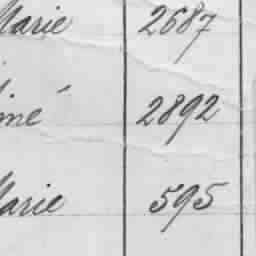 Marie 2687
imé 2892
Marie 595